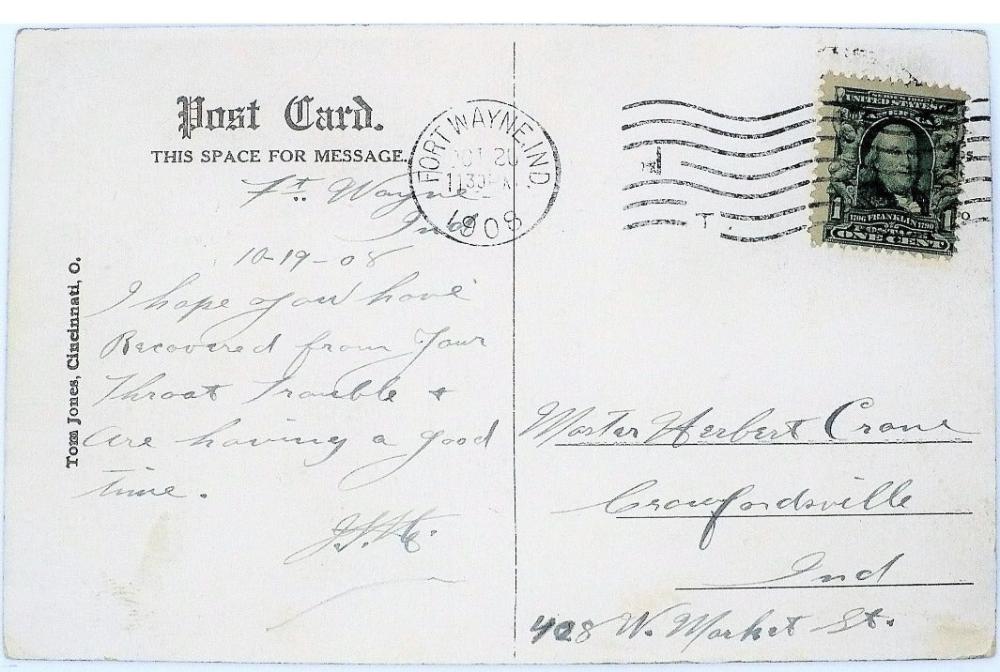 Post Card.
THIS SPACE FOR MESSAGE.
Ft. Wayne
Ind
10-19-08
I hope you have
Recovered from Your
Throat Trouble &
are having a good
time.
Tom Jones, Cincinnati, O.
FORT WAYNE, IND.
OCT 20
1130 PM
1908
T.
UNITED STATES
1 1
1706 FRANKLIN 1790
ONE CENT
Master Herbert Crane
Crawfordsville
Ind
428 W. Market St.